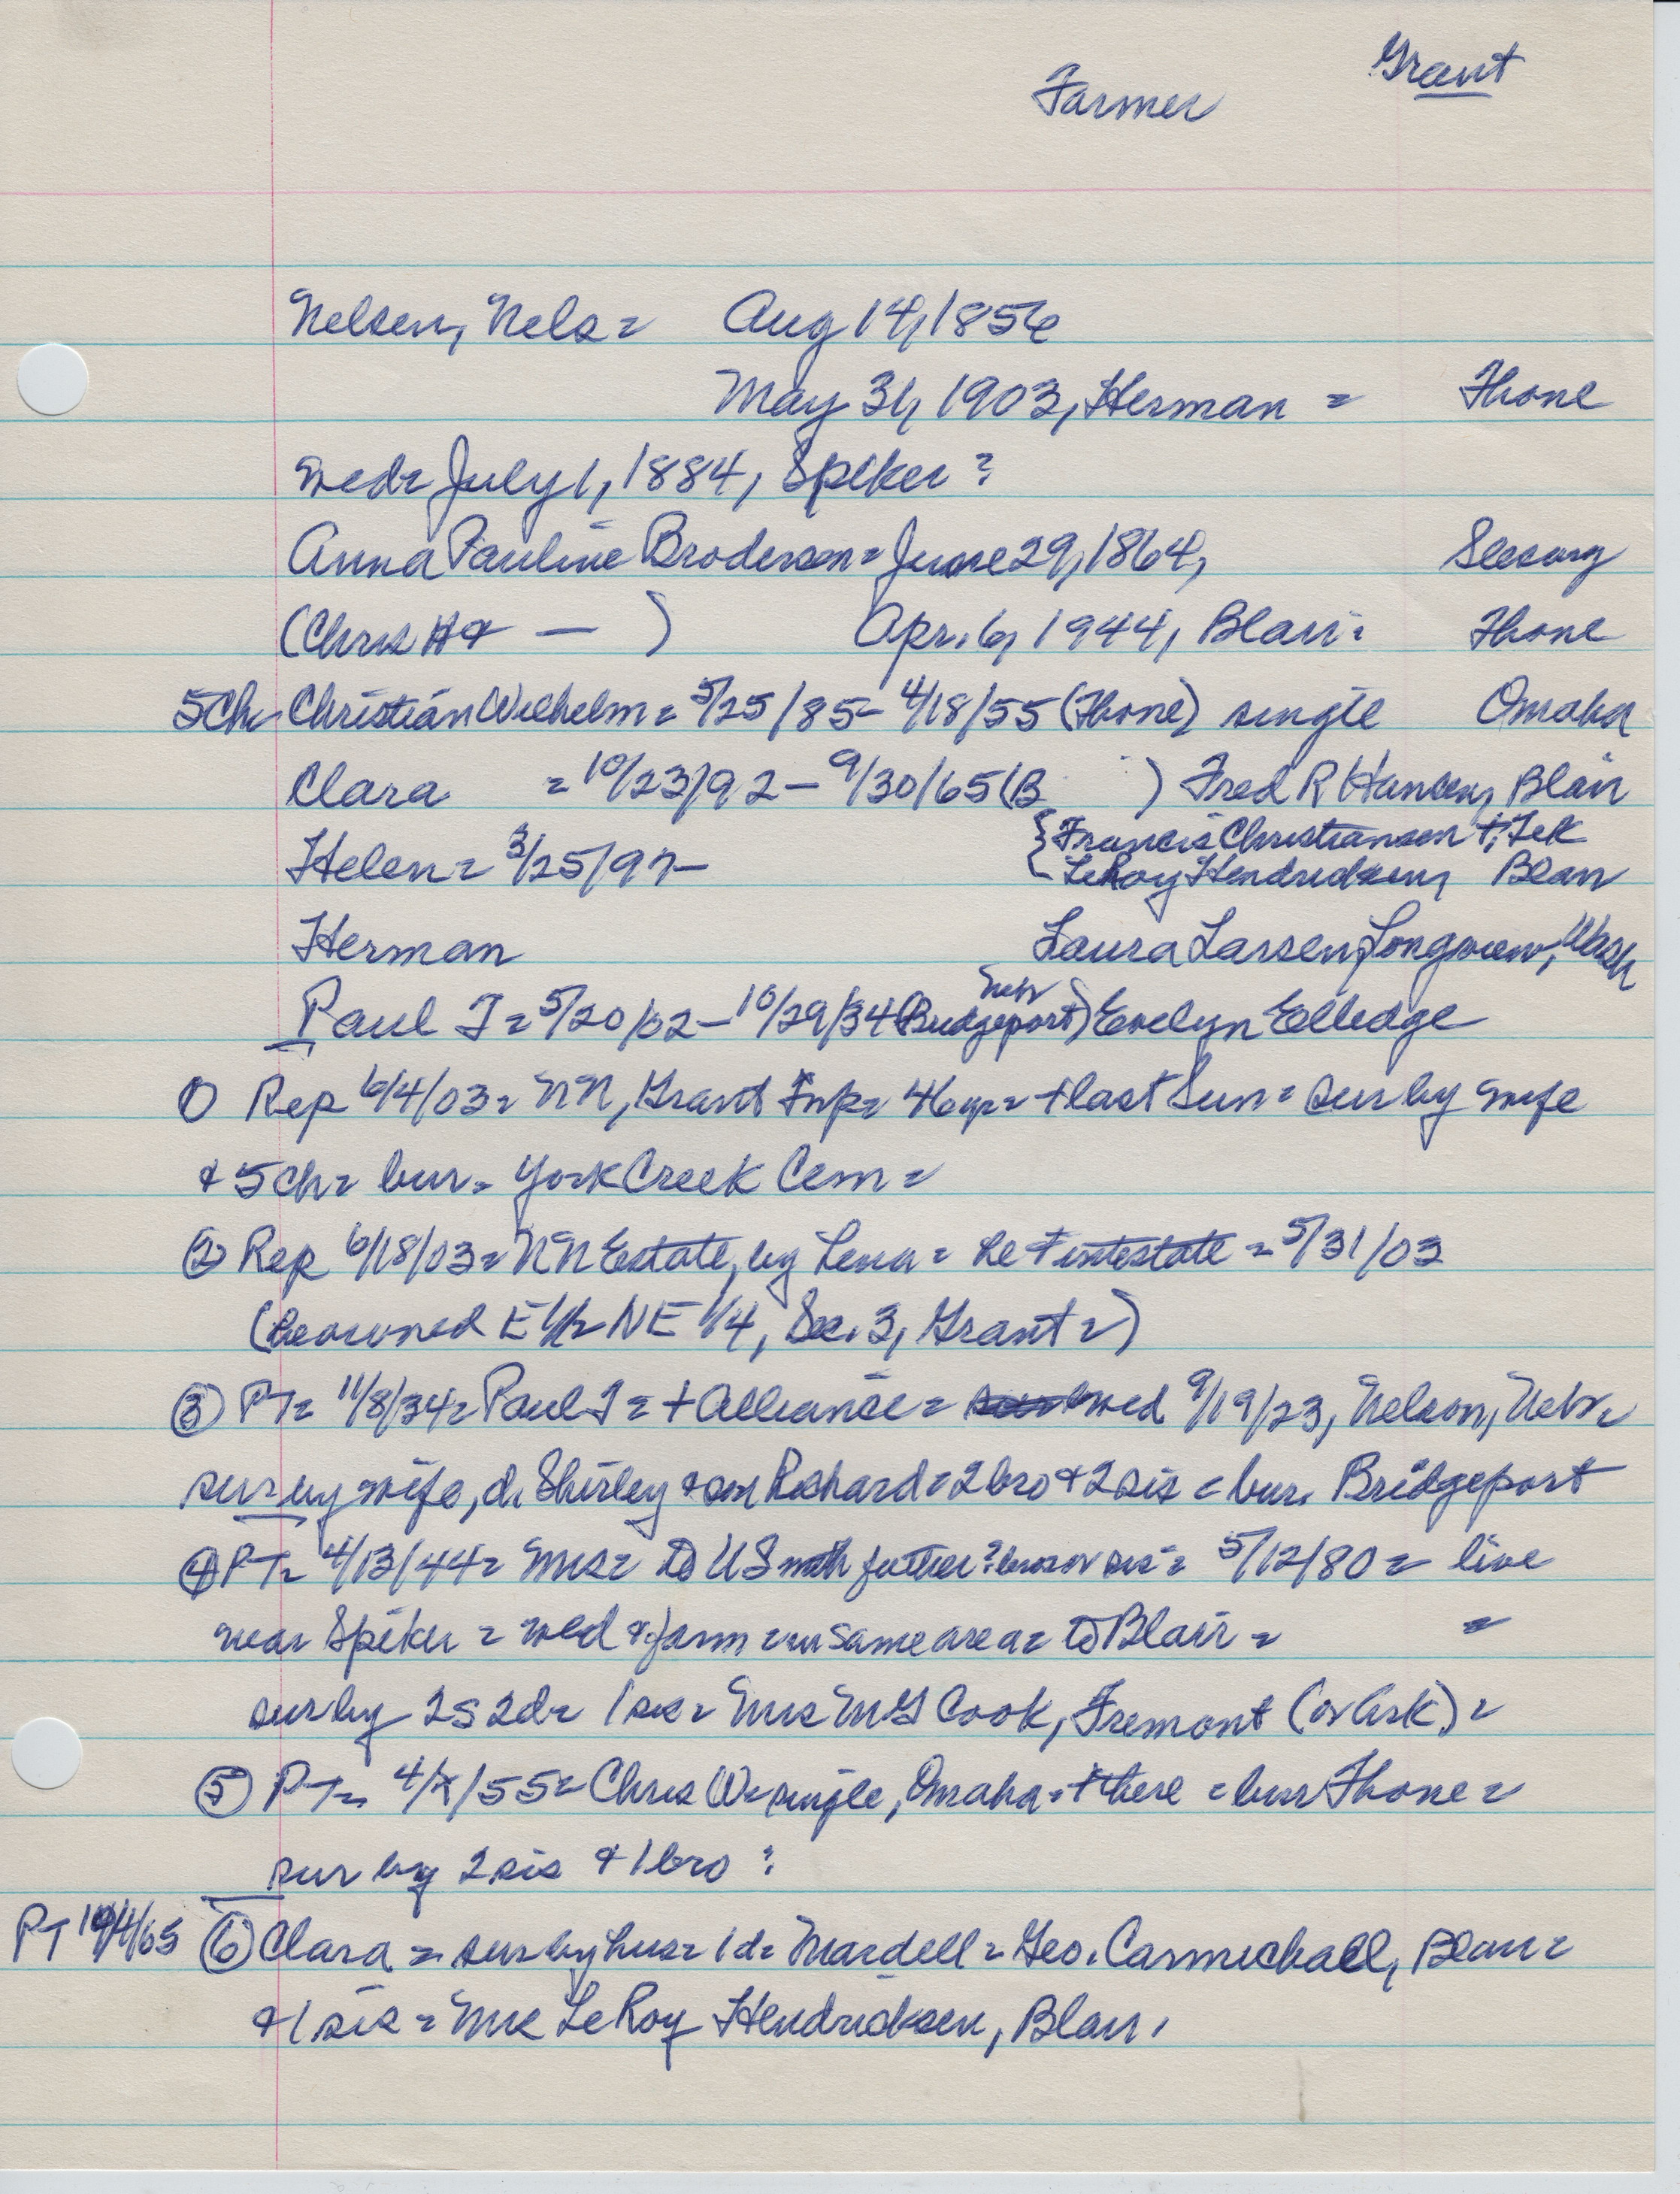 Grant
Farmer
Nelsen, Nels = Aug 14, 1856
May 31, 1903, Herman = Thone
wed = July 1, 1884, Spiker ?
Anna Pauline Brodersen = June 29, 1864,
(Chris H & — ) Apr. 6, 1944, Blair = Thone
5 Ch - Christian Wilhelm = 5/25/85 - 4/18/55 (Thone) single Omaha
Clara = 10/23/92 - 9/30/65 (B ) Fred R Hansen, Blair
{ Francis Christiansen +, Tek
Helen = 3/25/97 - LeRoy Hendricksen, Blair
Herman Laura Larsen, Longview, Wash
Nebr
Paul J = 5/20/02 - 10/29/34 (Bridgeport) Evelyn Elledge
① Rep 6/4/03 = NN, Grant Twp = 46 yr = + last Sun = sur by wife
& 5 ch = bur = York Creek Cem =
② Rep 6/18/03 = NN Estate, by Lena = he + intestate = 5/31/03
(he owned E 1/2 NE 1/4, Sec. 3, Grant =)
③ PT = 11/8/34 = Paul J = + Alliance = wed 9/19/23, Nelson, Nebr =
sur by wife, d. Shirley & son Richard = 2 bro & 2 sis = bur. Bridgeport
④ PT = 4/13/44 = Mrs = to US with father ? bros or sis = 5/12/80 = live
near Spiker = wed & farm = in same area = to Blair = =
sur by 2s 2d = 1 sis = Mrs MG Cook, Fremont (or Ark) =
⑤ PT = 4/ /55 = Chris W = single, Omaha = + there = bur Thone =
sur by 2 sis & 1 bro ?
PT 10/4/65 ⑥ Clara = sur by hus = 1 d = Mardell = Geo. Carmichael, Blair =
& 1 sis = Mrs LeRoy Hendricksen, Blair,